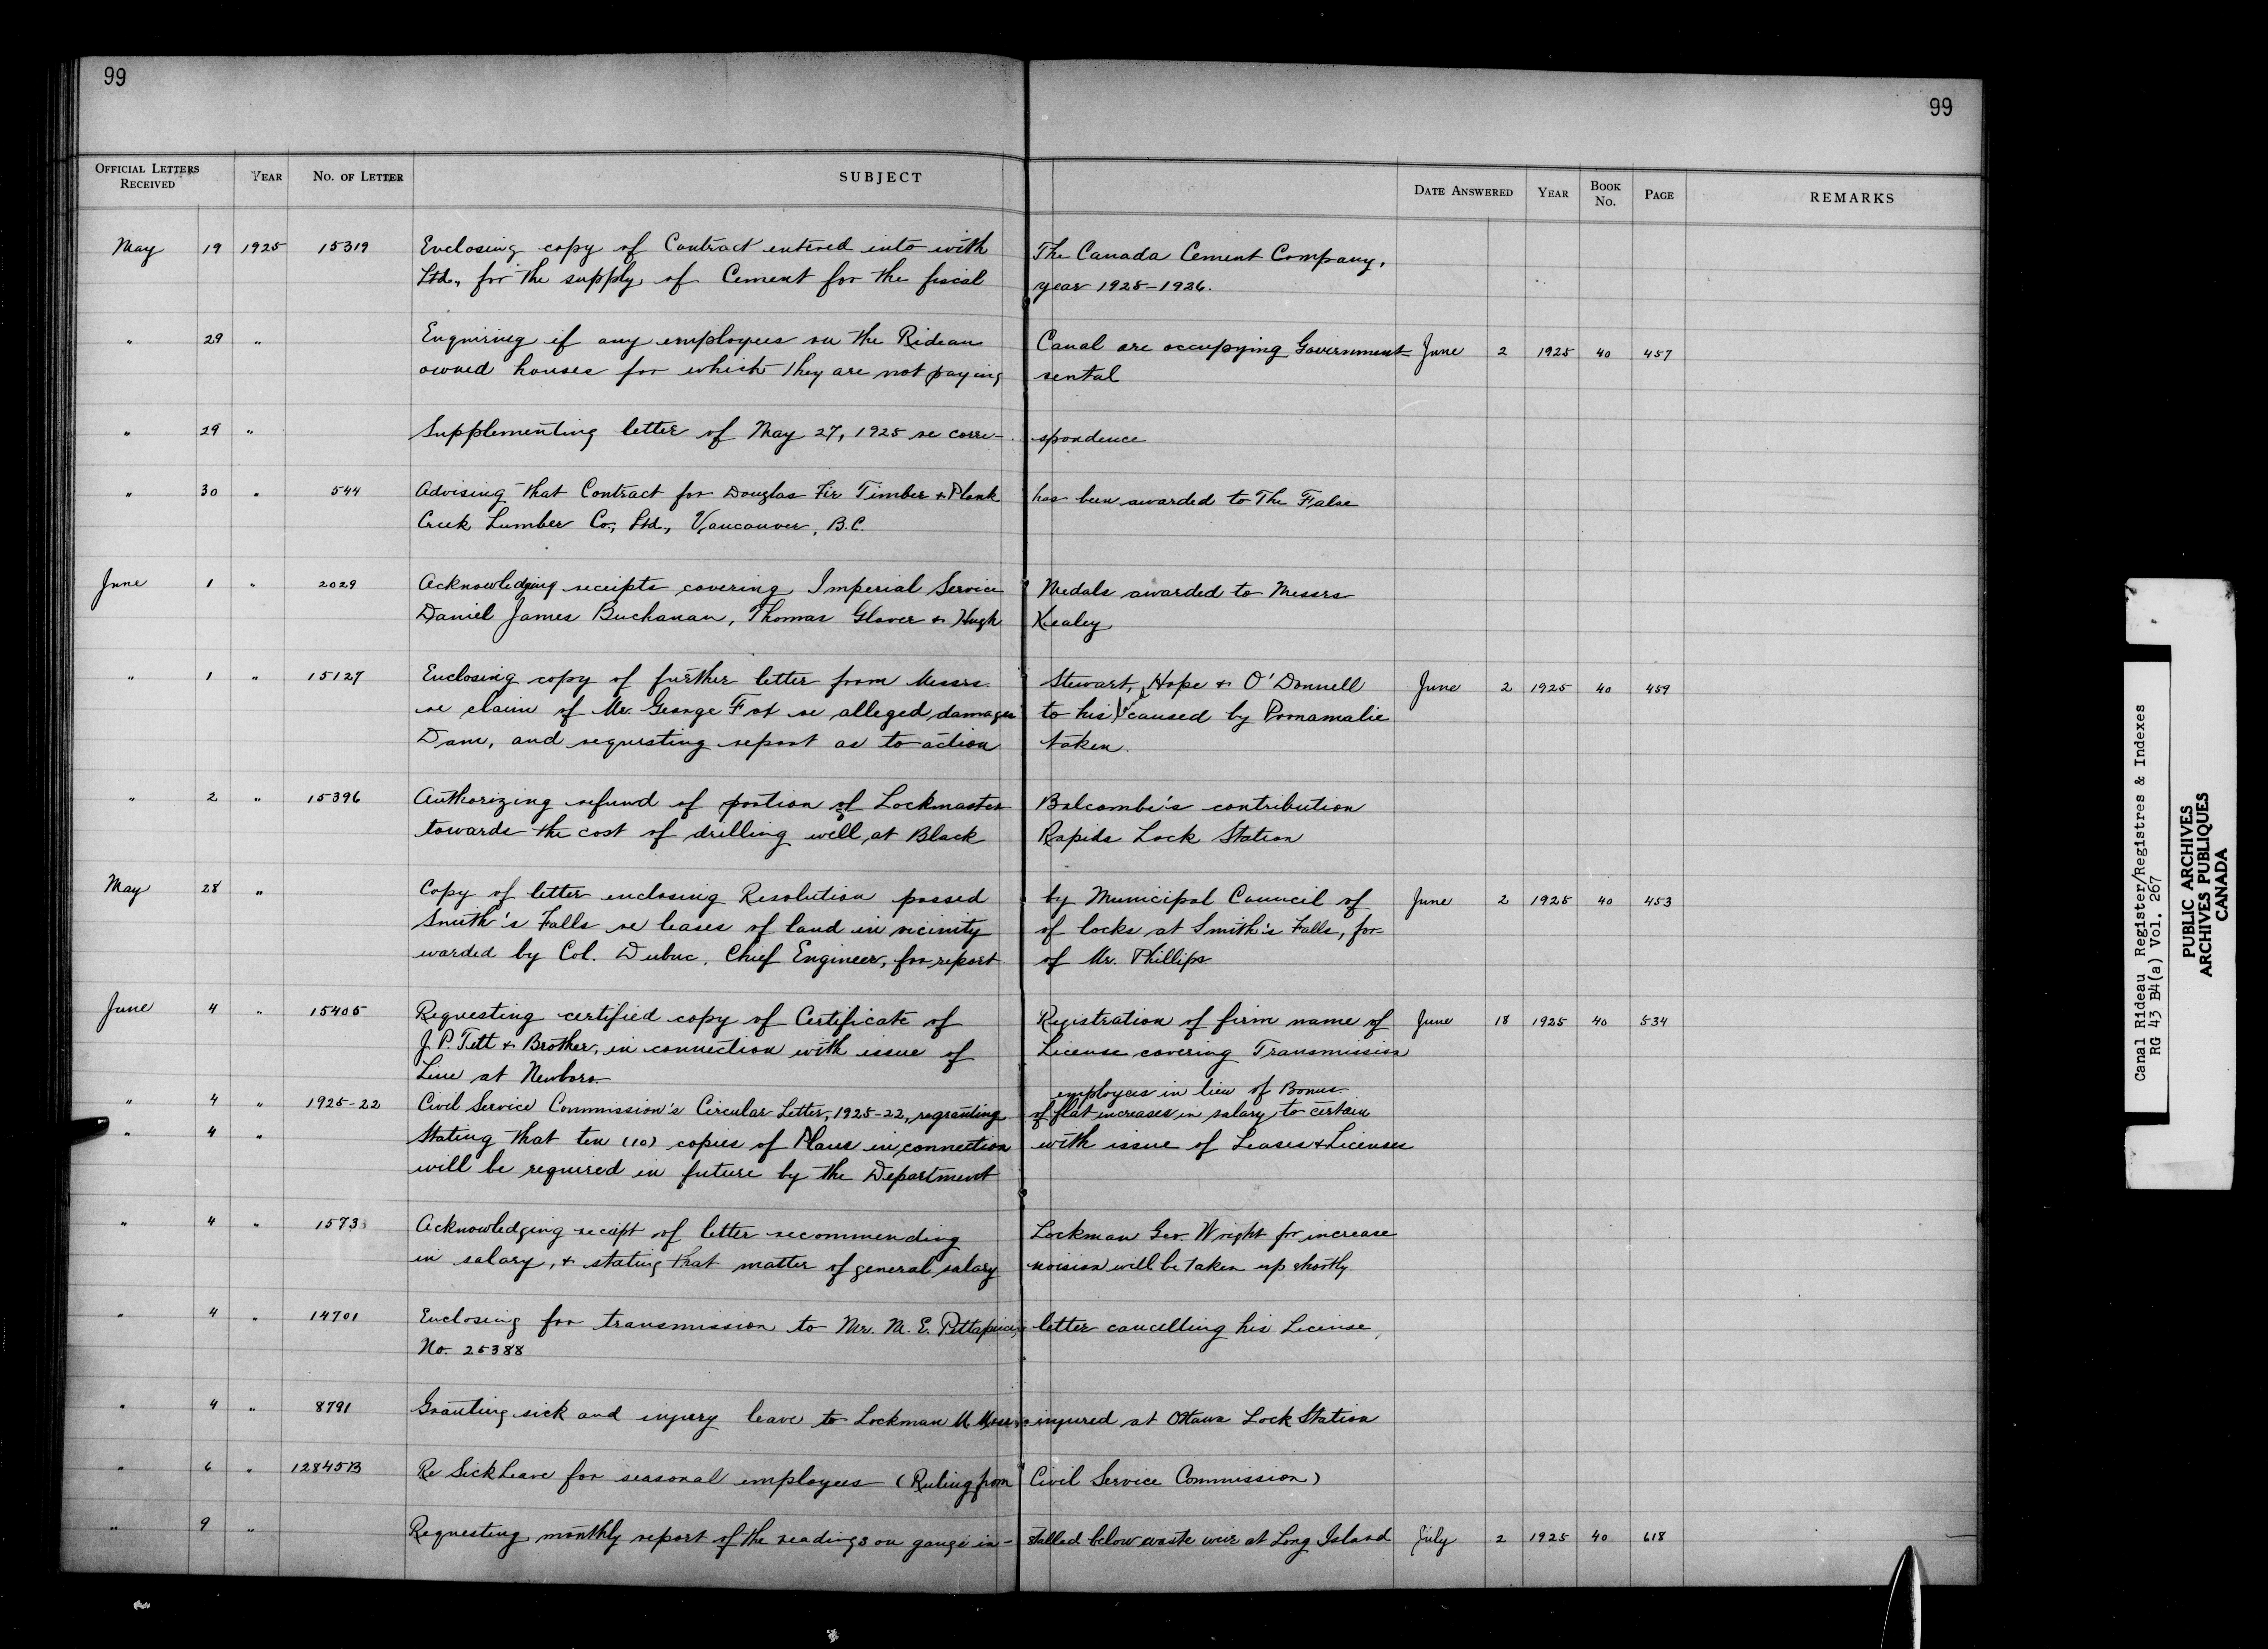 99
99
OFFICIAL LETTERS RECEIVED YEAR NO. OF LETTER SUBJECT DATE ANSWERED YEAR BOOK NO. PAGE REMARKS
May 19 1925 15319 Enclosing copy of Contract entered into with The Canada Cement Company,
Ltd., for the supply of Cement for the fiscal year 1925-1926.
" 29 " Enquiring if any employees on the Rideau Canal are occupying Government- June 2 1925 40 457
owned houses for which they are not paying rental
" 29 " Supplementing letter of May 27, 1925 re corre- spondence
" 30 " 544 Advising that Contract for Douglas Fir Timber & Plank has been awarded to The False
Creek Lumber Co., Ltd., Vancouver, B.C.
June 1 " 2029 Acknowledging receipts covering Imperial Service Medals awarded to Messrs
Daniel James Buchanan, Thomas Glover & Hugh Kealey
" 1 " 15127 Enclosing copy of further letter from Messrs. Stewart, Hope & O'Donnell June 2 1925 40 459
re claim of Mr. George Foot re alleged damages to his caused by Poonamalie
Dam, and requesting report as to action taken.
" 2 " 15396 Authorizing refund of portion of Lockmaster Balcombe's contribution
towards the cost of drilling well at Black Rapids Lock Station
May 28 " Copy of letter enclosing Resolution passed by Municipal Council of June 2 1925 40 453
Smith's Falls re leases of land in vicinity of locks at Smith's Falls, for-
warded by Col. Dubuc, Chief Engineer, for report of Mr. Phillips
June 4 " 15405 Requesting certified copy of Certificate of Registration of firm name of June 18 1925 40 534
J. P. Tett & Brother, in connection with issue of License covering Transmission
Line at Newboro.
employees in lieu of Bonus.
" 4 " 1925-22 Civil Service Commission's Circular Letter, 1925-22, re granting of flat increases in salary to certain
" 4 " Stating that ten (10) copies of Plans in connection with issue of Leases & Licenses
will be required in future by the Department
" 4 " 1573 Acknowledging receipt of letter recommending Lockman Geo. Wright for increase
in salary, & stating that matter of general salary revision will be taken up shortly.
" 4 " 14701 Enclosing for transmission to Mr. M. E. letter cancelling his License,
No. 25388
" 4 " 8791 Granting sick and injury leave to Lockman M. injured at Ottawa Lock Station
" 6 " 12845B Re Sick Leave for seasonal employees (Ruling from Civil Service Commission)
" 9 " Requesting monthly report of the readings on gauge in- stalled below waste weir at Long Island July 2 1925 40 618
Canal Rideau Register/Registres & Indexes
RG 43 B4(a) Vol. 267
PUBLIC ARCHIVES
ARCHIVES PUBLIQUES
CANADA